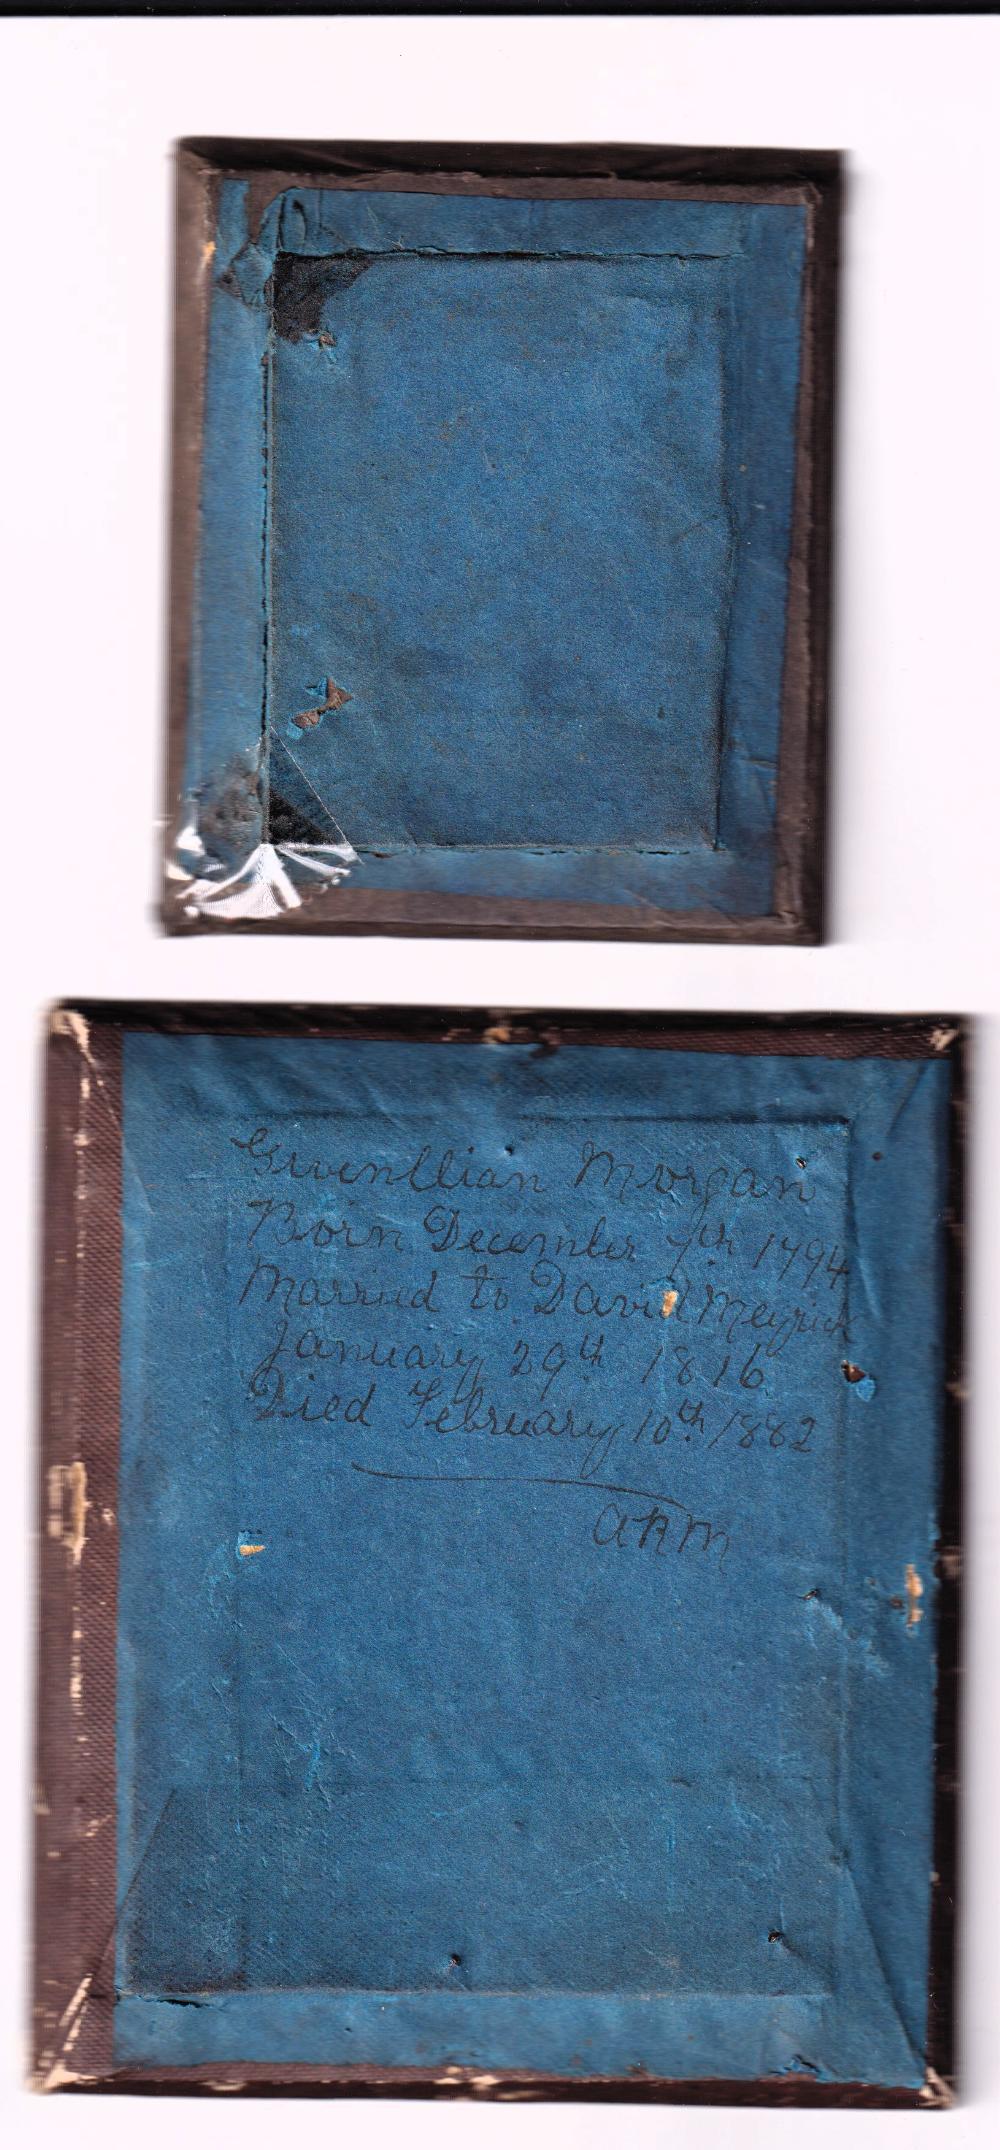 Gwenllian Morgan
Born December 7th 1794
Married to David Meyrick
January 29th 1816
Died February 10th 1882
ARM